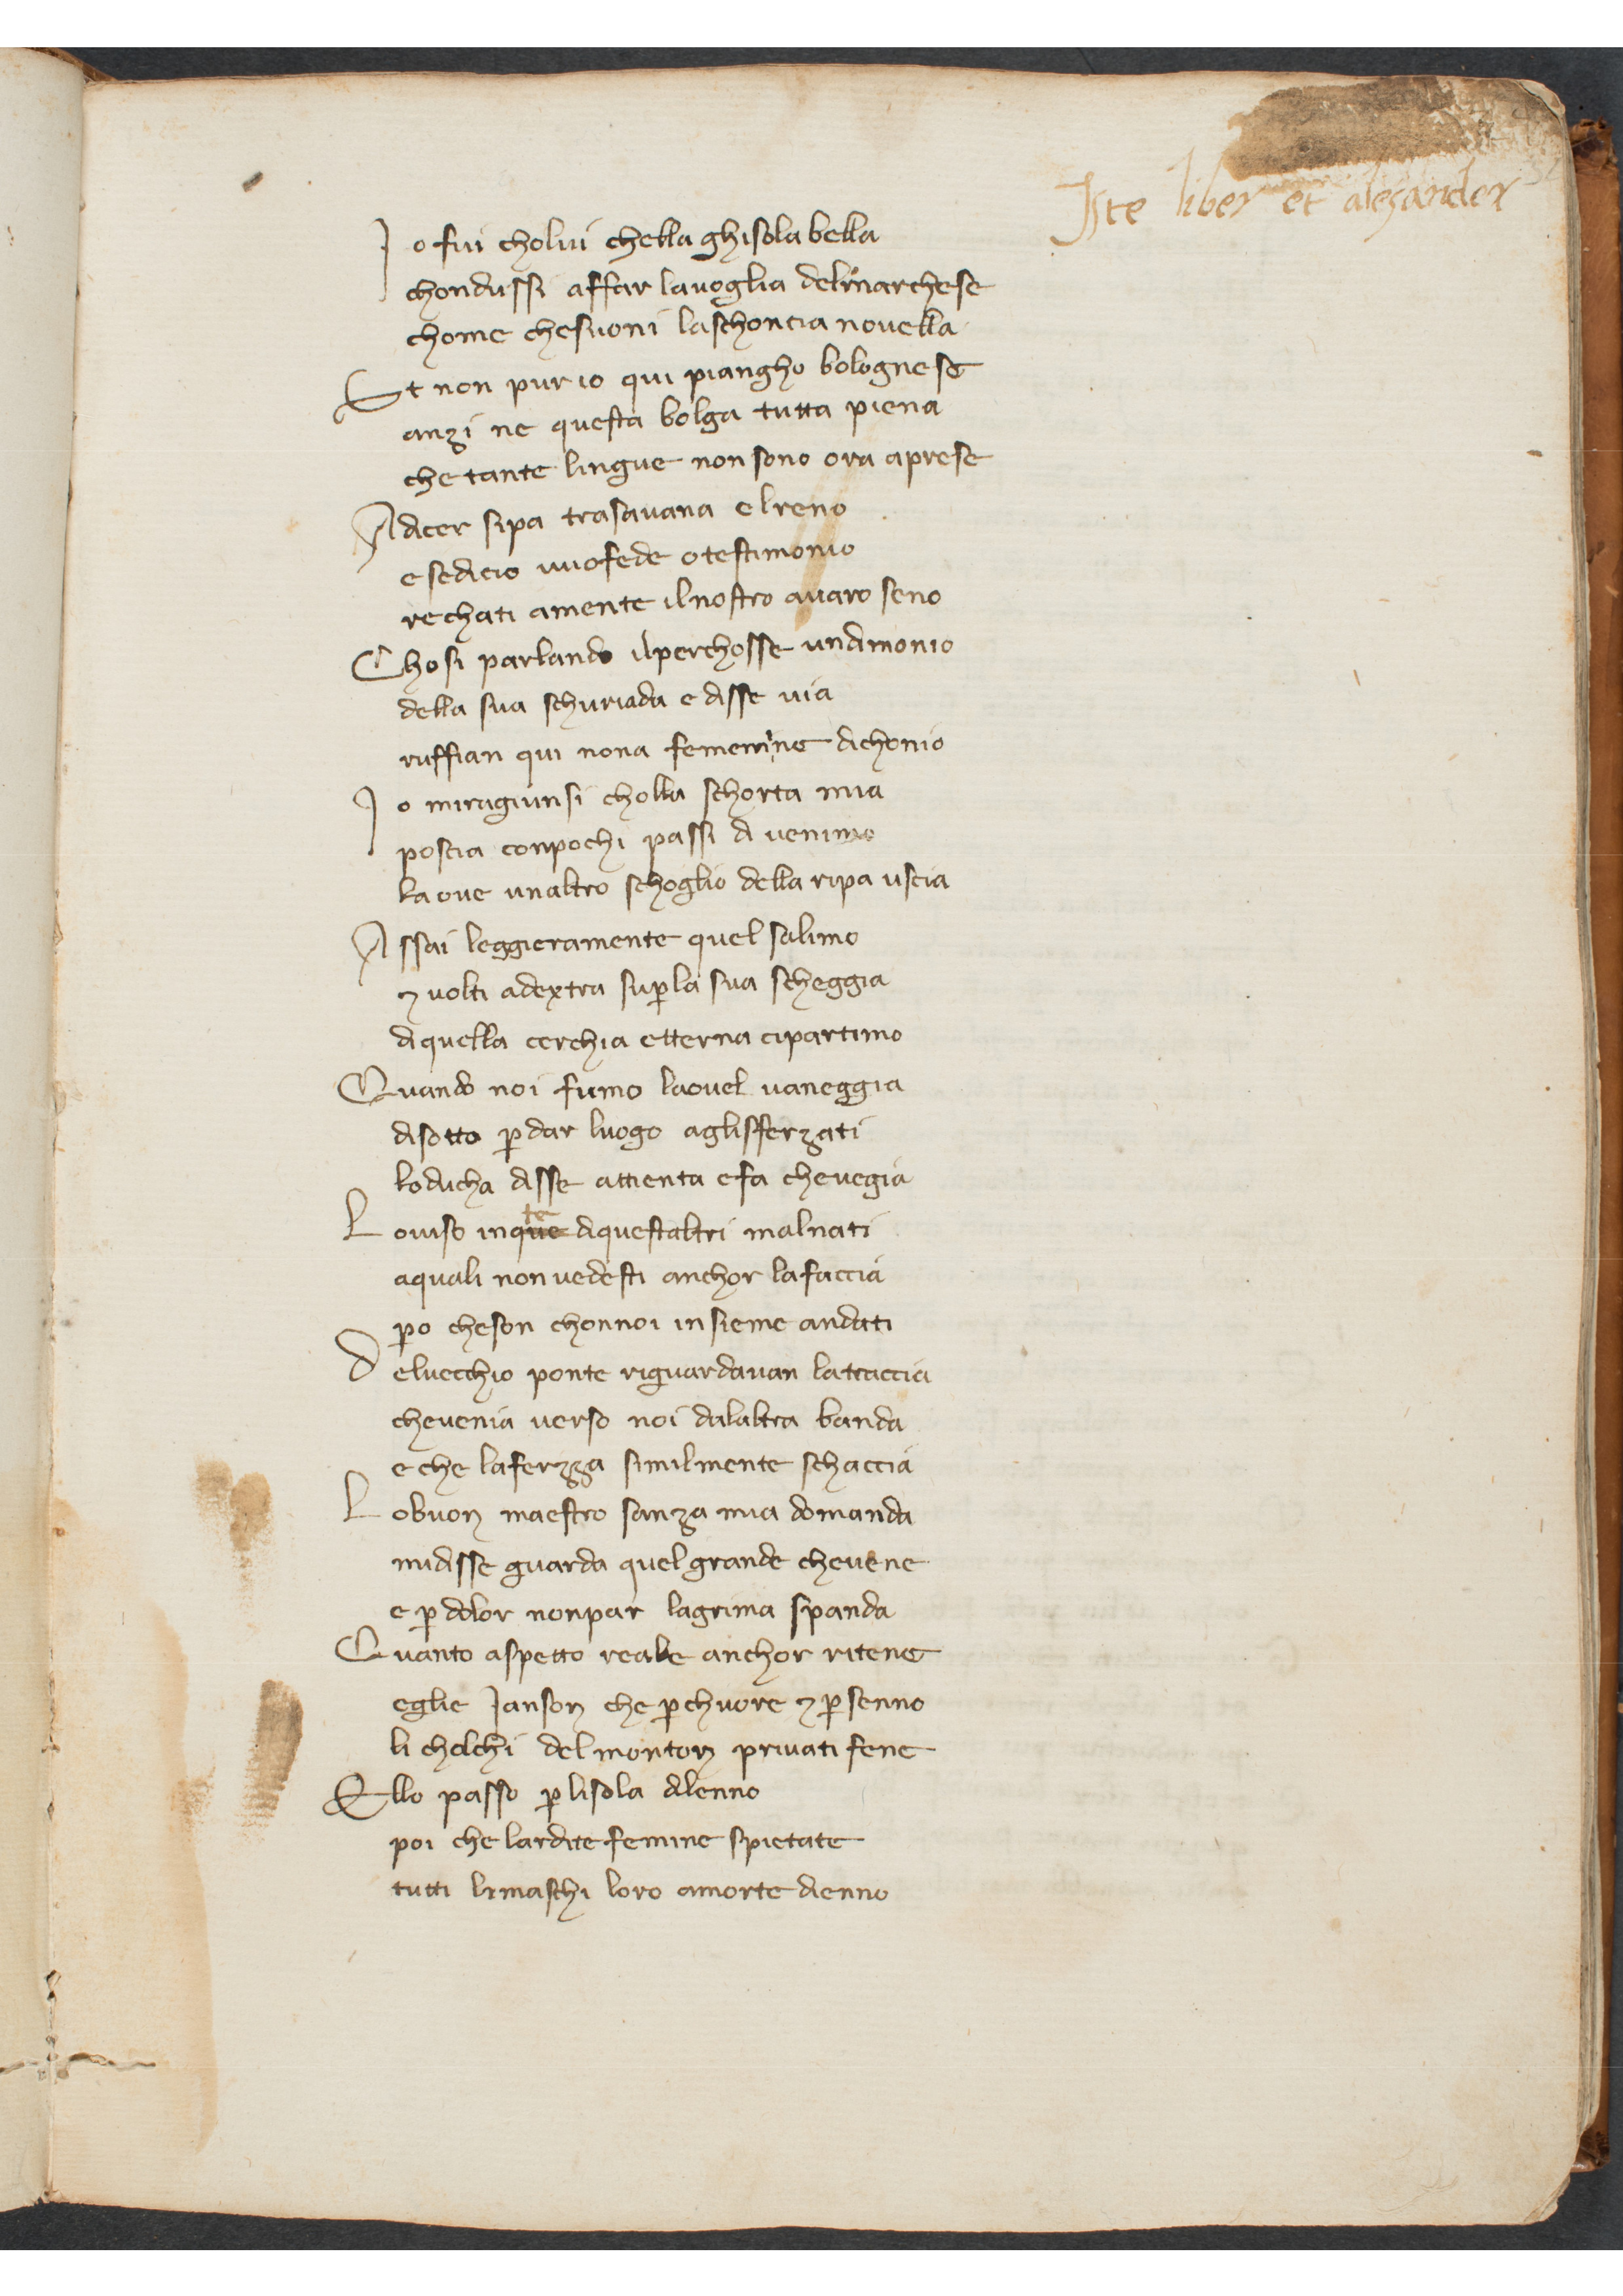 Iste liber et alesander
Io fui cholui chella ghisola bella
chondussi affar lauoglia delmarchese
chome chesuoni laschoncia nouella
Et non pur io qui piangho bolognese
anzi ne questa bolga tutta piena
che tante lingue non sono ora aprese
Adicer sipa trasauana elreno
esedicio vuofede otestimonio
rechati amente ilnostro auaro seno
Chosi parlando ilperchosse undimonio
della sua schuriada e disse uia
ruffian qui nona femenine dichonio
Io miragiunsi cholla schorta mia
poscia conpochi passi di uenimo
laoue unaltro schoglio della ripa uscia
Assai leggieramente quel salimo
⁊ uolti adextra sup̱la sua scheggia
diquella cerchia etterna cipartimo
Quando noi fumo laouel uaneggia
disotto p̱ dar luogo aglisferzati
loducha disse attienta efa cheuegia
Louiso inque te diquestaltri malnati
aquali non uedesti anchor lafaccia
p̱o cheson chonnoi insieme andati
Deluecchio ponte riguardauan latraccia
cheuenia uerso noi dalaltra banda
e che laferzza similmente schaccia
Lobuon maestro sanza mia domanda
midisse guarda quel grande cheuene
e p̱ dolor nonpar lagrima spanda
Quanto aspetto reale anchor ritene
eglie Janson che p̱chuore ⁊ p̱ senno
li cholchi del monton priuati fene
Ello passo p̱ lisola dilenno
poi che lardite femine spietate
tutti limaschi loro amorte dienno